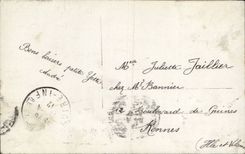 Bons baisers petite
André
Mlle Juliette Jaillier
chez Mr Bannier
12 Boulevard de Guines
Rennes
(Ille et Vil